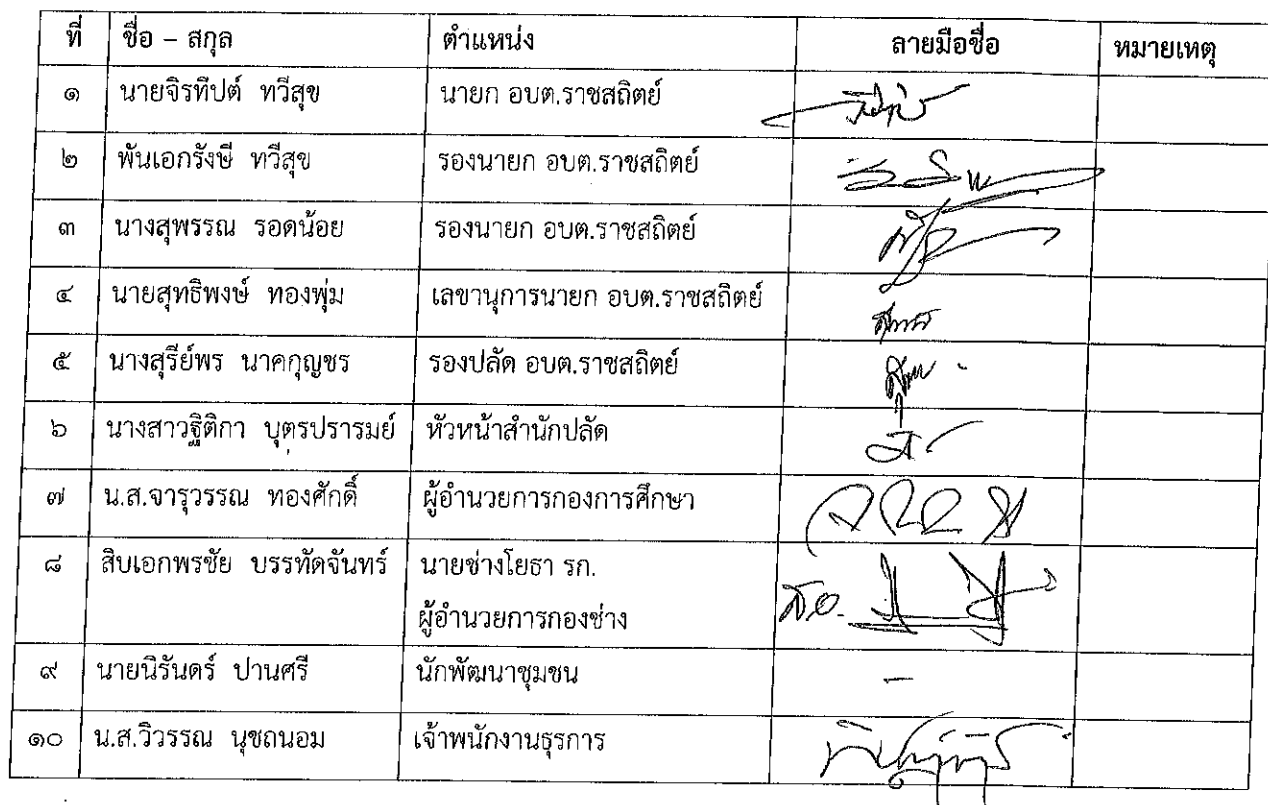 ที่ ชื่อ – สกุล ตำแหน่ง ลายมือชื่อ หมายเหตุ
๑ นายจิรทีปต์ ทวีสุข นายก อบต.ราชสถิตย์
๒ พันเอกรังษี ทวีสุข รองนายก อบต.ราชสถิตย์
๓ นางสุพรรณ รอดน้อย รองนายก อบต.ราชสถิตย์
๔ นายสุทธิพงษ์ ทองพุ่ม เลขานุการนายก อบต.ราชสถิตย์
๕ นางสุรีย์พร นาคกุญชร รองปลัด อบต.ราชสถิตย์
๖ นางสาวฐิติกา บุตรปรารมย์ หัวหน้าสำนักปลัด
๗ น.ส.จารุวรรณ ทองศักดิ์ ผู้อำนวยการกองการศึกษา
๘ สิบเอกพรชัย บรรทัดจันทร์ นายช่างโยธา รก. ส.อ.
ผู้อำนวยการกองช่าง
๙ นายนิรันดร์ ปานศรี นักพัฒนาชุมชน -
๑๐ น.ส.วิวรรณ นุชถนอม เจ้าพนักงานธุรการ